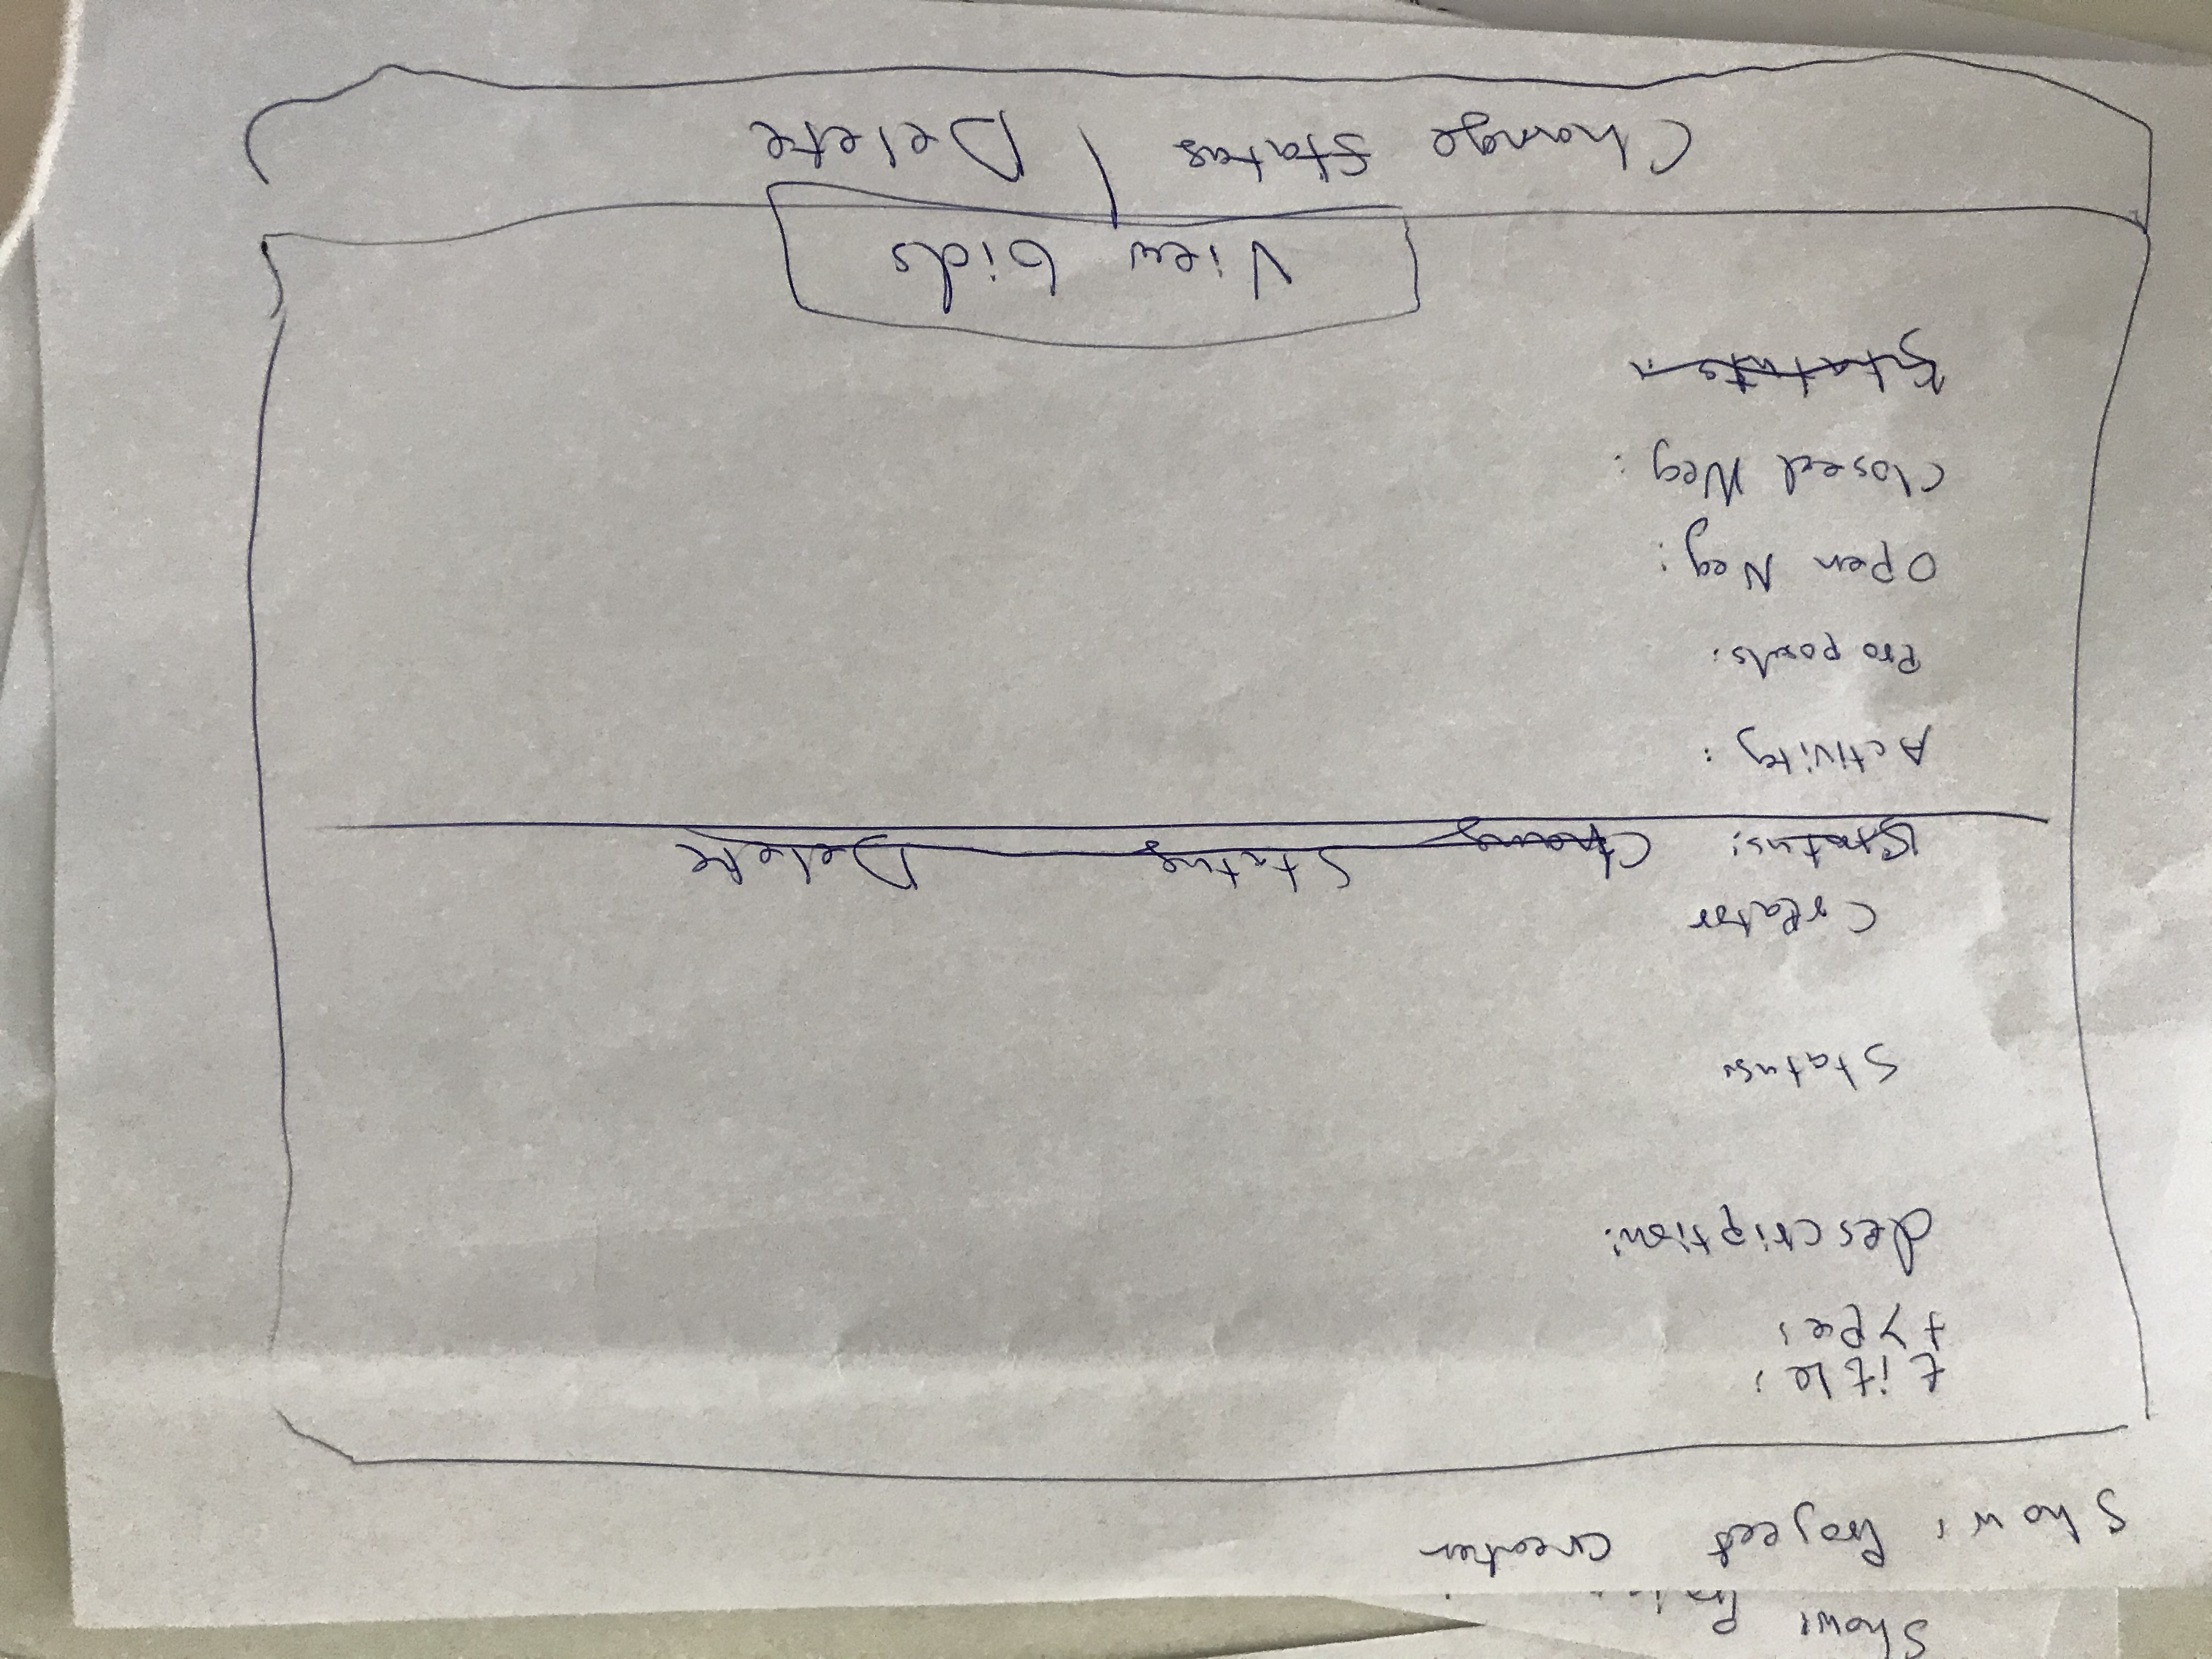 Show:
Show: Project Creator
title:
type:
description:
Status:
Creator
Status: Change Status Delete
Activity:
Proposals:
Open Neg:
Closed Neg:
Status:
View bids
Change Status | Delete